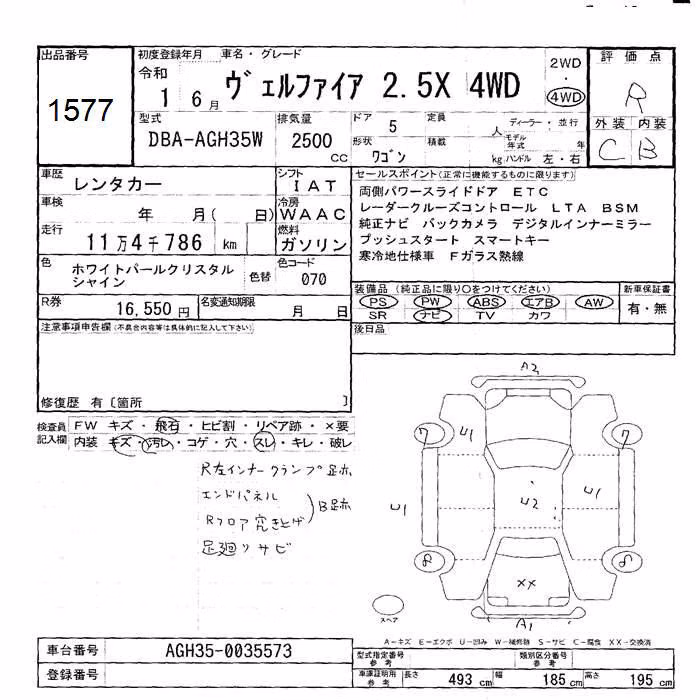 出品番号
1577
初度登録年月 車名・グレード
令和
1 6月
ヴェルファイア 2.5X 4WD
2WD
・
4WD
評価点
R
外装 内装
C B
型式
DBA-AGH35W
排気量
2500 cc
ドア 5
定員 人
形状 ワゴン
積載 kg
ディーラー・並行
モデル年式 年
ハンドル 左・右
車歴
レンタカー
シフト
IAT
車検
年 月( 日)
冷房
WAAC
走行
11万4千786 km
燃料
ガソリン
色
ホワイトパールクリスタル
シャイン
色替
色コード
070
R券
16,550円
名変通知期限
月 日
セールスポイント(正常に機能するものに限ります)
両側パワースライドドア ETC
レーダークルーズコントロール LTA BSM
純正ナビ バックカメラ デジタルインナーミラー
プッシュスタート スマートキー
寒冷地仕様車 Fガラス熱線
装備品(純正品に限り〇をつけてください)
PS PW ABS エアB AW
SR ナビ TV カワ
新車保証書
有・無
後日品
注意事項申告欄(不具合内容等は具体的に記入して下さい)
修復歴 有〔箇所 〕
検査員
記入欄
FW キズ・飛石・ヒビ割・リペア跡・×要
内装 キズ・汚レ・コゲ・穴・スレ・キレ・破レ
R左インナークランプ足亦
エンドパネル
Rフロア突き上げ
B足亦
足廻りサビ
A2
7
U1
7
U1
U2
U1
8
8
XX
A1
スペア
A-キズ E-エクボ U-凹み W-補修跡 S-サビ C-腐食 XX-交換済
車台番号
AGH35-0035573
登録番号
型式指定番号
参考
類別区分番号
参考
車庫証明用
参考
長さ 493 cm
幅 185 cm
高さ 195 cm